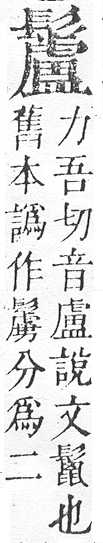 𩯺
力吾切音盧說文鬣也
舊本譌作分爲二